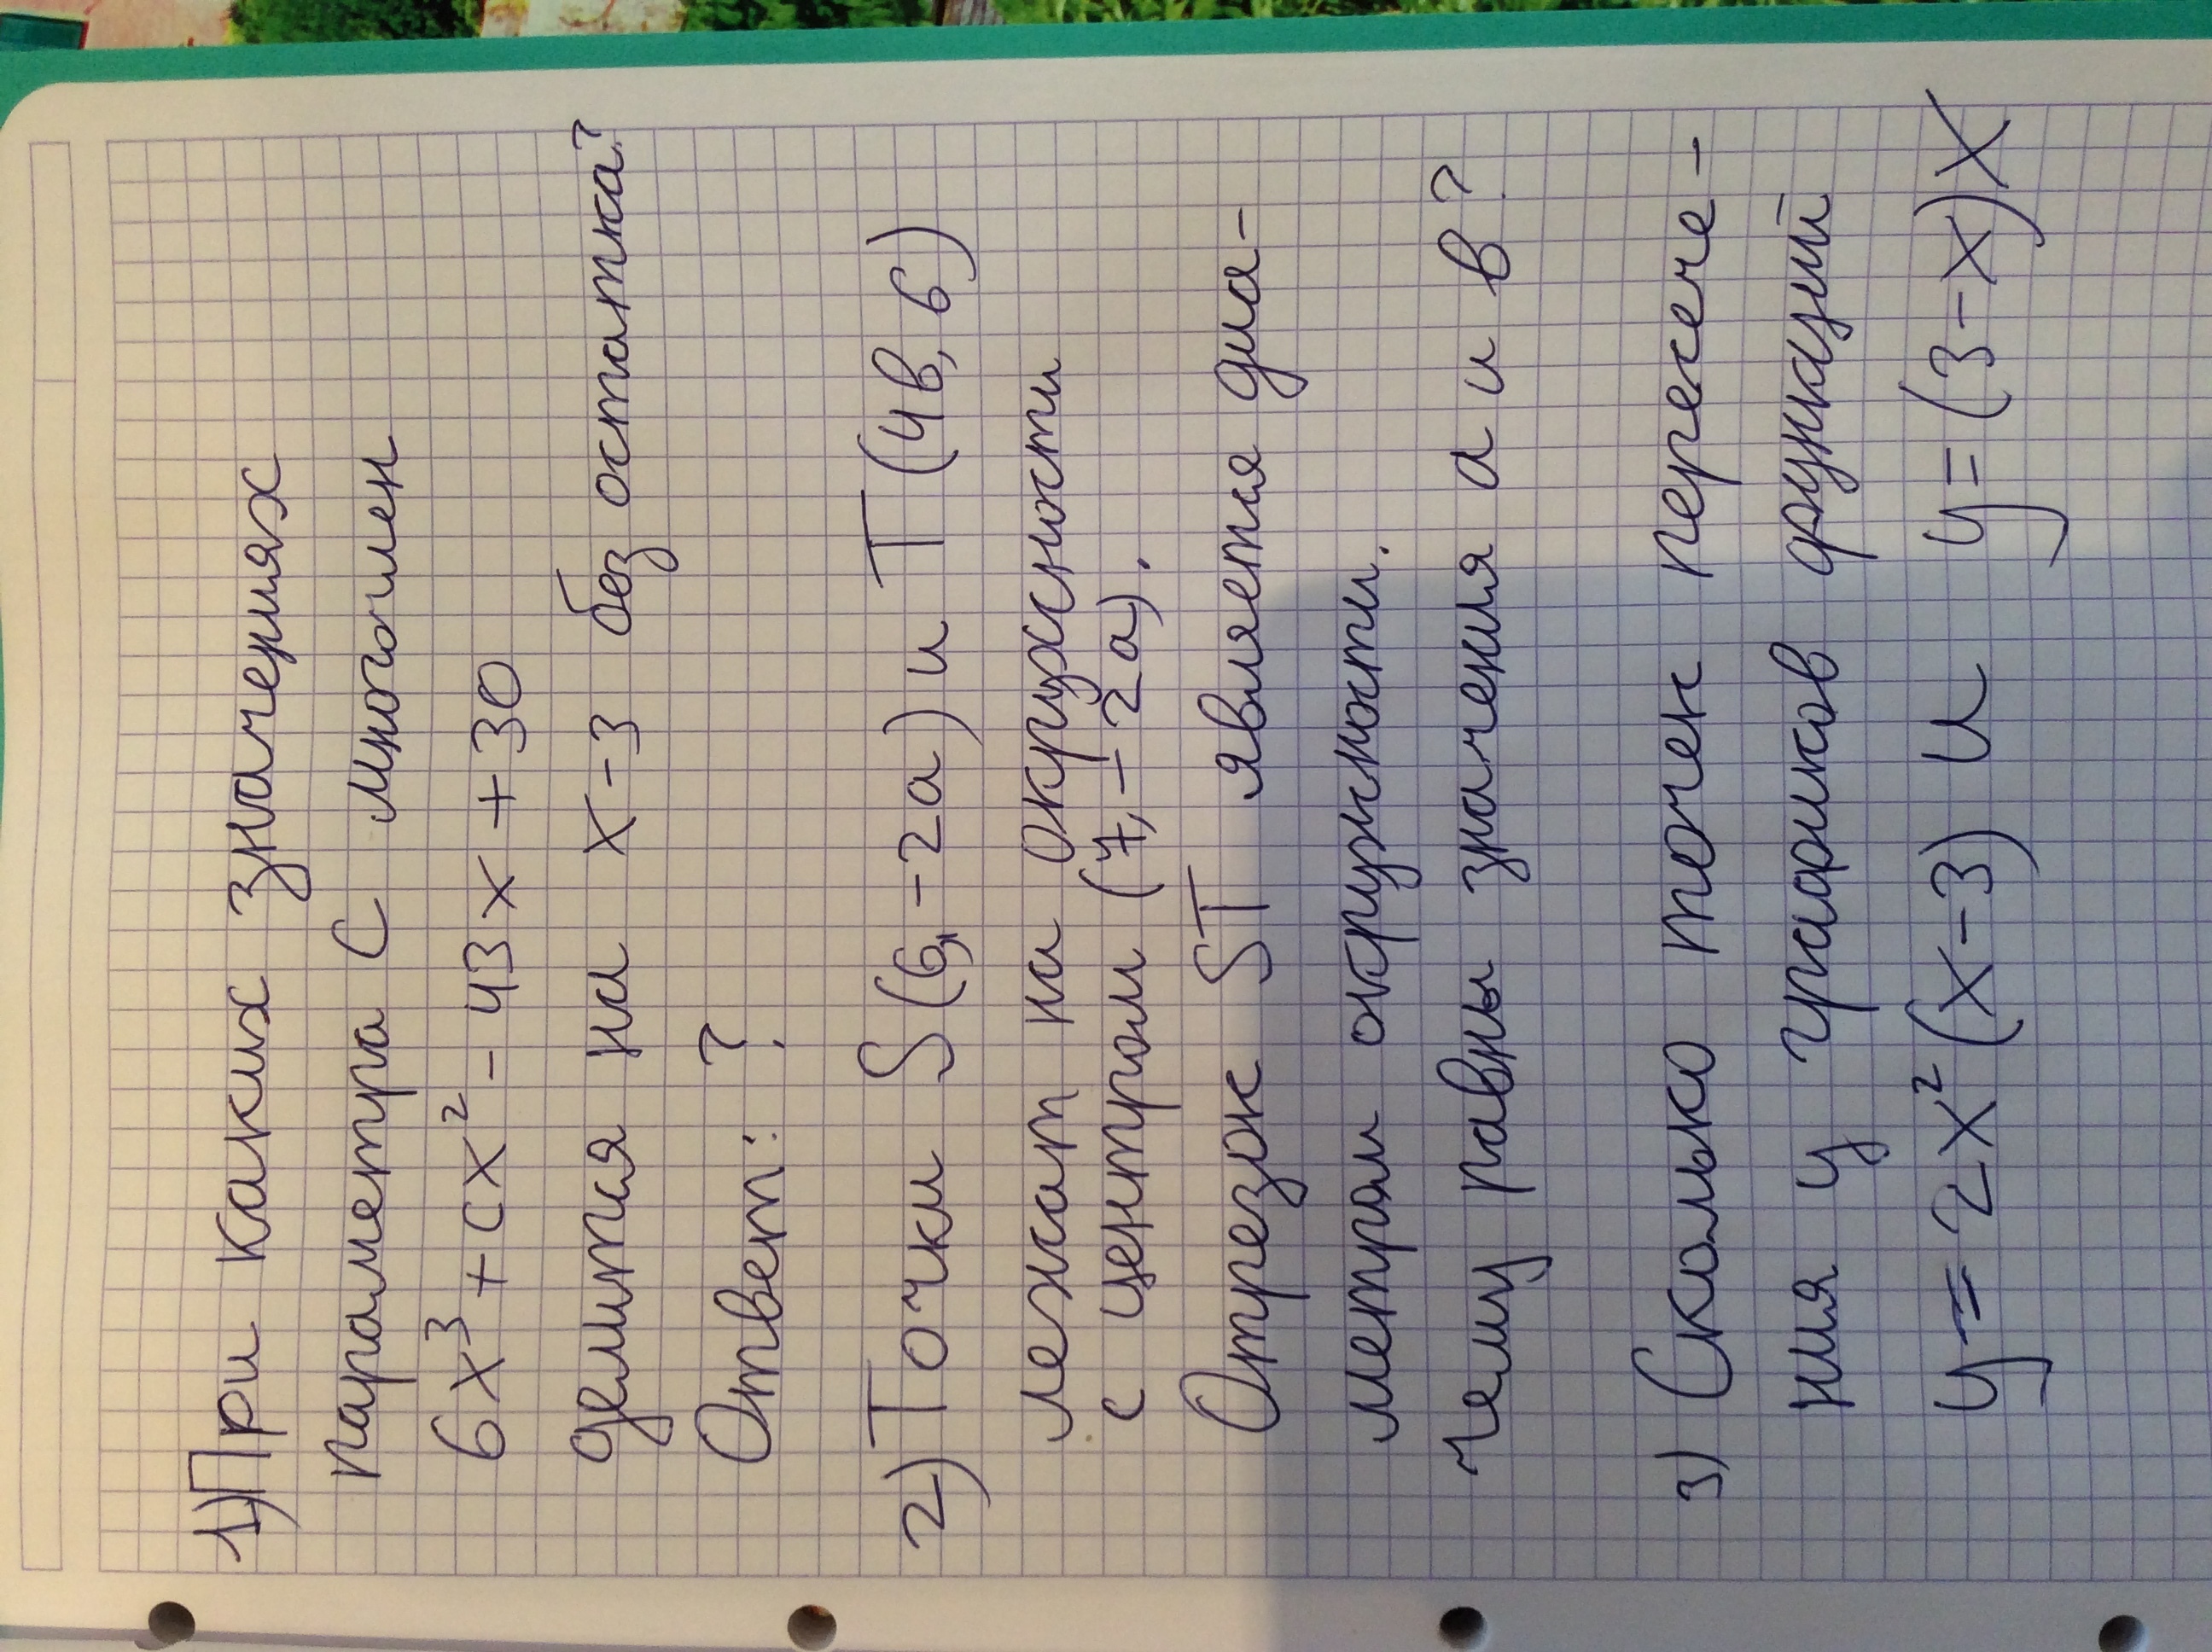 1) При каких значениях
параметра С многочлен
6x³ + cx² - 43x + 30
делится на x-3 без остатка?
Ответ: ?
2) Точки S(6,-2a) и T(4в,6)
лежат на окружности
с центром (7,-2a).
Отрезок ST является диа-
метром окружности.
Чему равны значения a и в?
3) Сколько точек пересече-
ния у графиков функций
y = 2x²(x-3) и y=(3-x)x